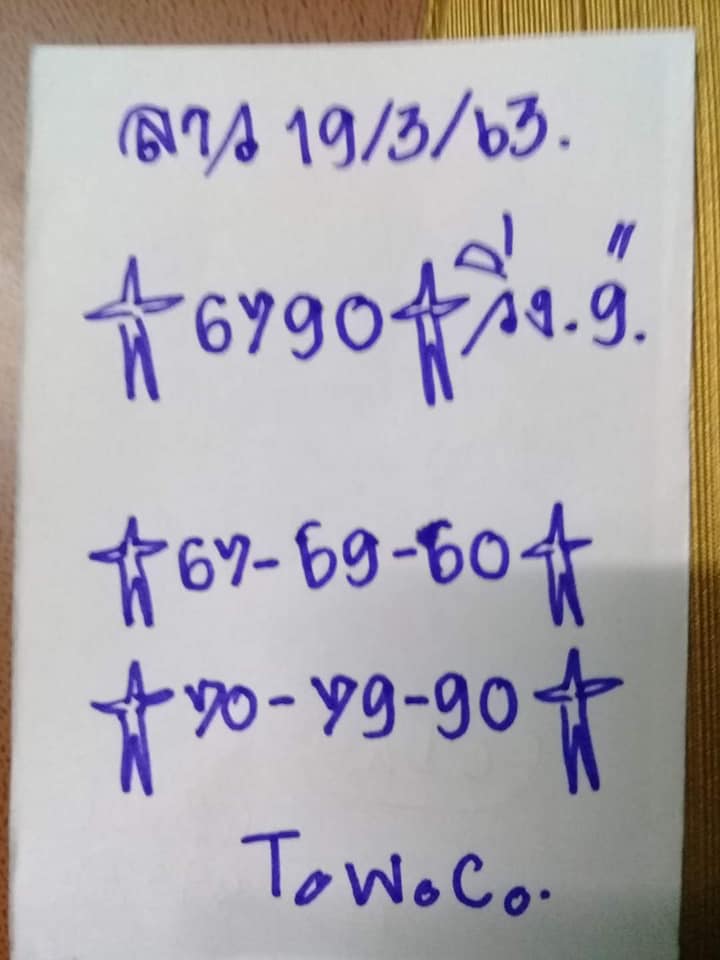 ลาว 19/3/63.
6790 วิ่ง.9".
67-69-60
70-79-90
T.W.C.